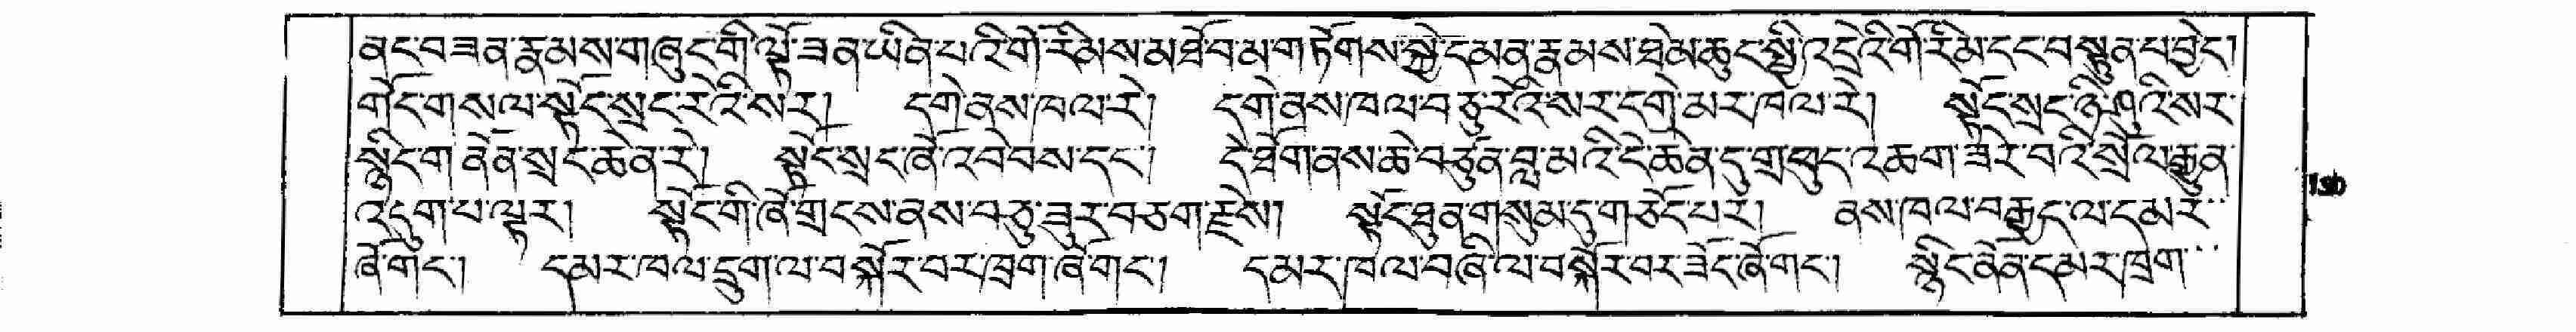 ནང་བཟན་རྣམས་གཞུང་གི་ལྟོ་ཟན་ཡིན་པའི་གོ་རིམས་མ་ཐོབ་མ་གཏོགས་སྐྱེ་དམན་རྣམས་ཐེམ་ཆུང་སྤྱི་འདྲེའི་གོ་རིམ་དང་བསྟུན་པ་བྱེད།
གོང་གསལ་སྟོང་སྲང་རེའི་སར། དགེ་ནས་ཁལ་རེ། དགེ་ནས་ཁལ་བཅུ་རེའི་སར་དགེ་མར་ཁལ་རེ། སྟོང་སྲང་ཉི་ཤུའི་སར་
སྙིང་ག་ནོན་སྲང་ཆེན་རེ། སྟོང་སྲང་ཞོ་འབེབས་དང་། དེ་ཐོག་ནས་ཆེ་བཙུན་བླ་མའི་ངོ་ཆེན་དུ་གྲ་བུད་འཆག་ཟེར་བའི་སྲོལ་རྒྱུན་
འདུག་པ་ལྟར། སྟོང་གི་ཞོ་གྲངས་ནས་བཅུ་ཟུར་བཅག་རྗེས། སྟོང་ཐུན་གསུམ་དུ་གཅོང་པར། ནས་ཁལ་བརྒྱད་ལ་དམར་
ཞོ་གང་། དམར་ཁལ་དྲུག་ལ་བསྐོར་བར་ཁྲག་ཞོ་གང་། དམར་ཁལ་བཞི་ལ་བསྐོར་བར་ཟོང་ཞོ་གང་། སྙིང་ནོན་དམར་ཁྲག་